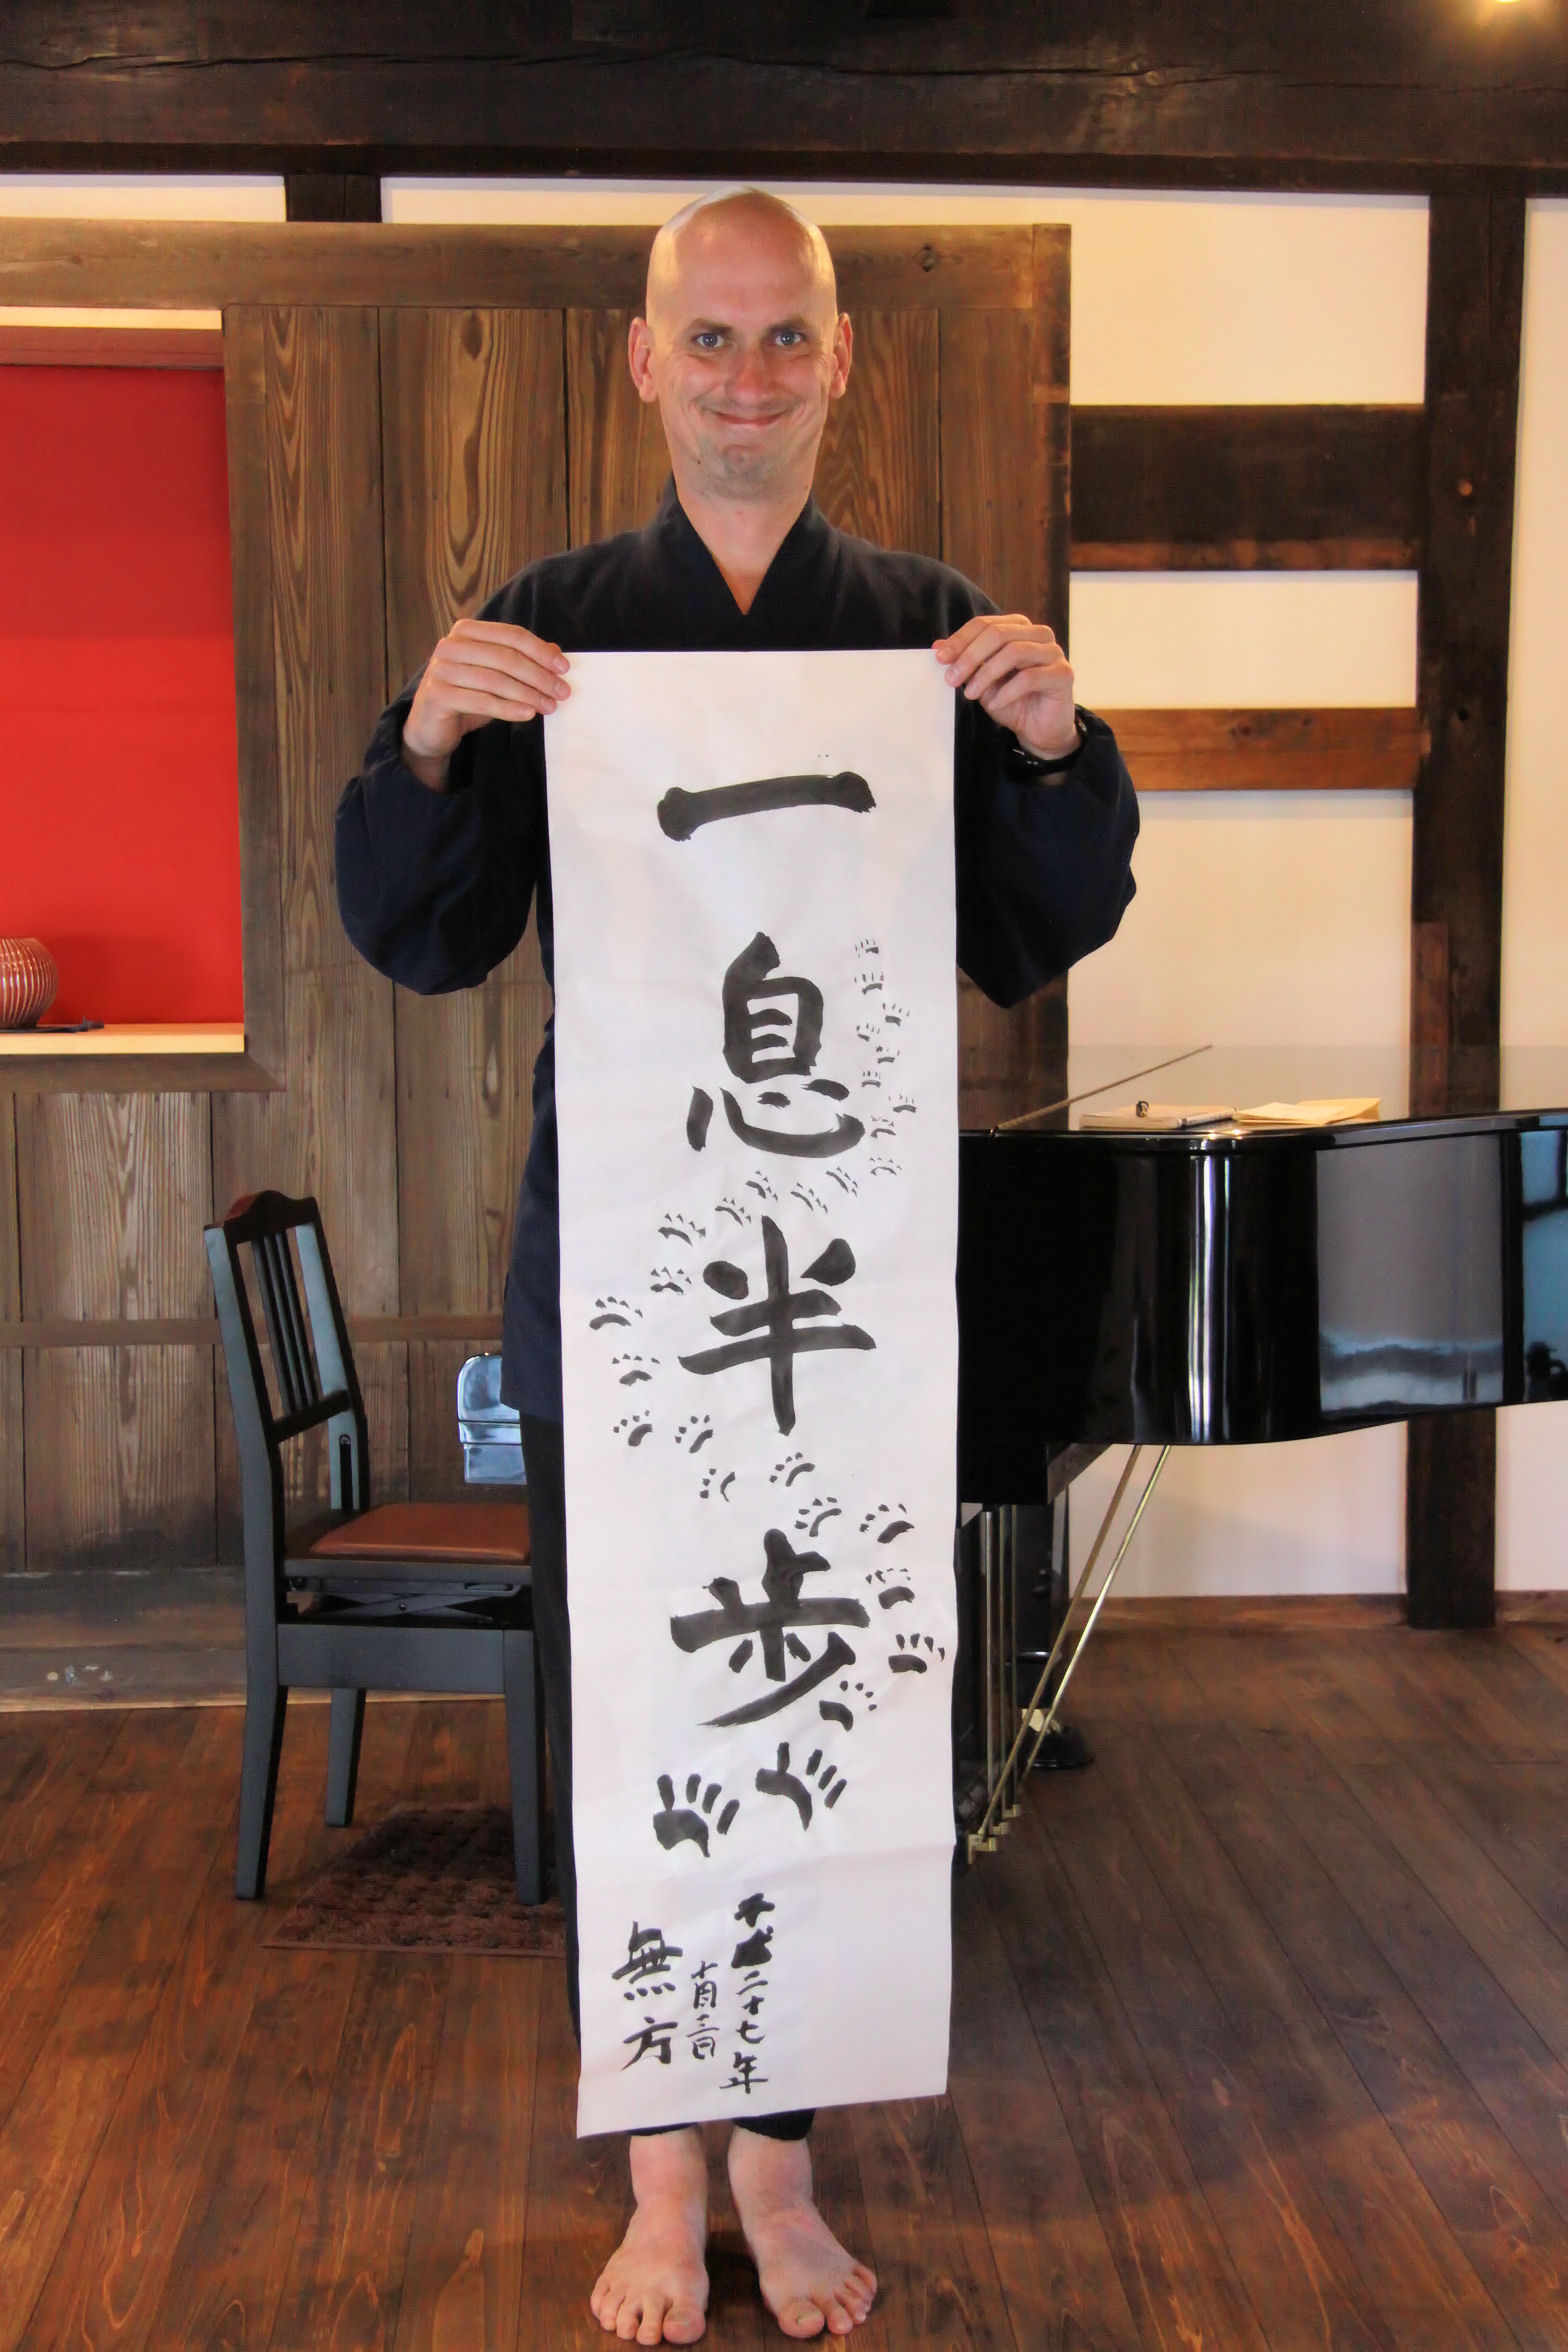 一息半歩
平成二十七年
十月三日
無方